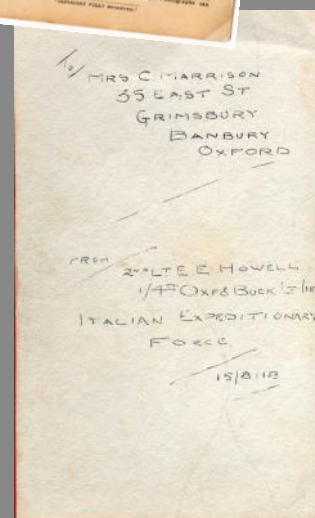 To/
MRS C. MARRISON
35 EAST ST
GRIMSBURY
BANBURY
OXFORD
FROM
2ND LT E E HOWELL
1/4TH OXF & BUCK LT INF
ITALIAN EXPEDITIONARY
FORCE
15/8/18